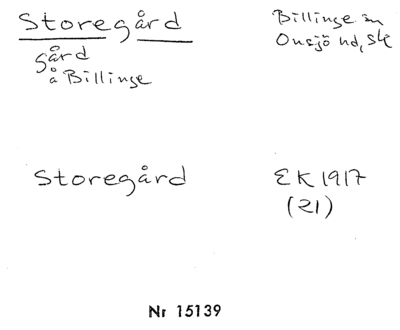 Storegård
gård
å Billinge
Billinge sn
Onsjö hd, Sk
Storegård
EK 1917
(21)
Nr 15139